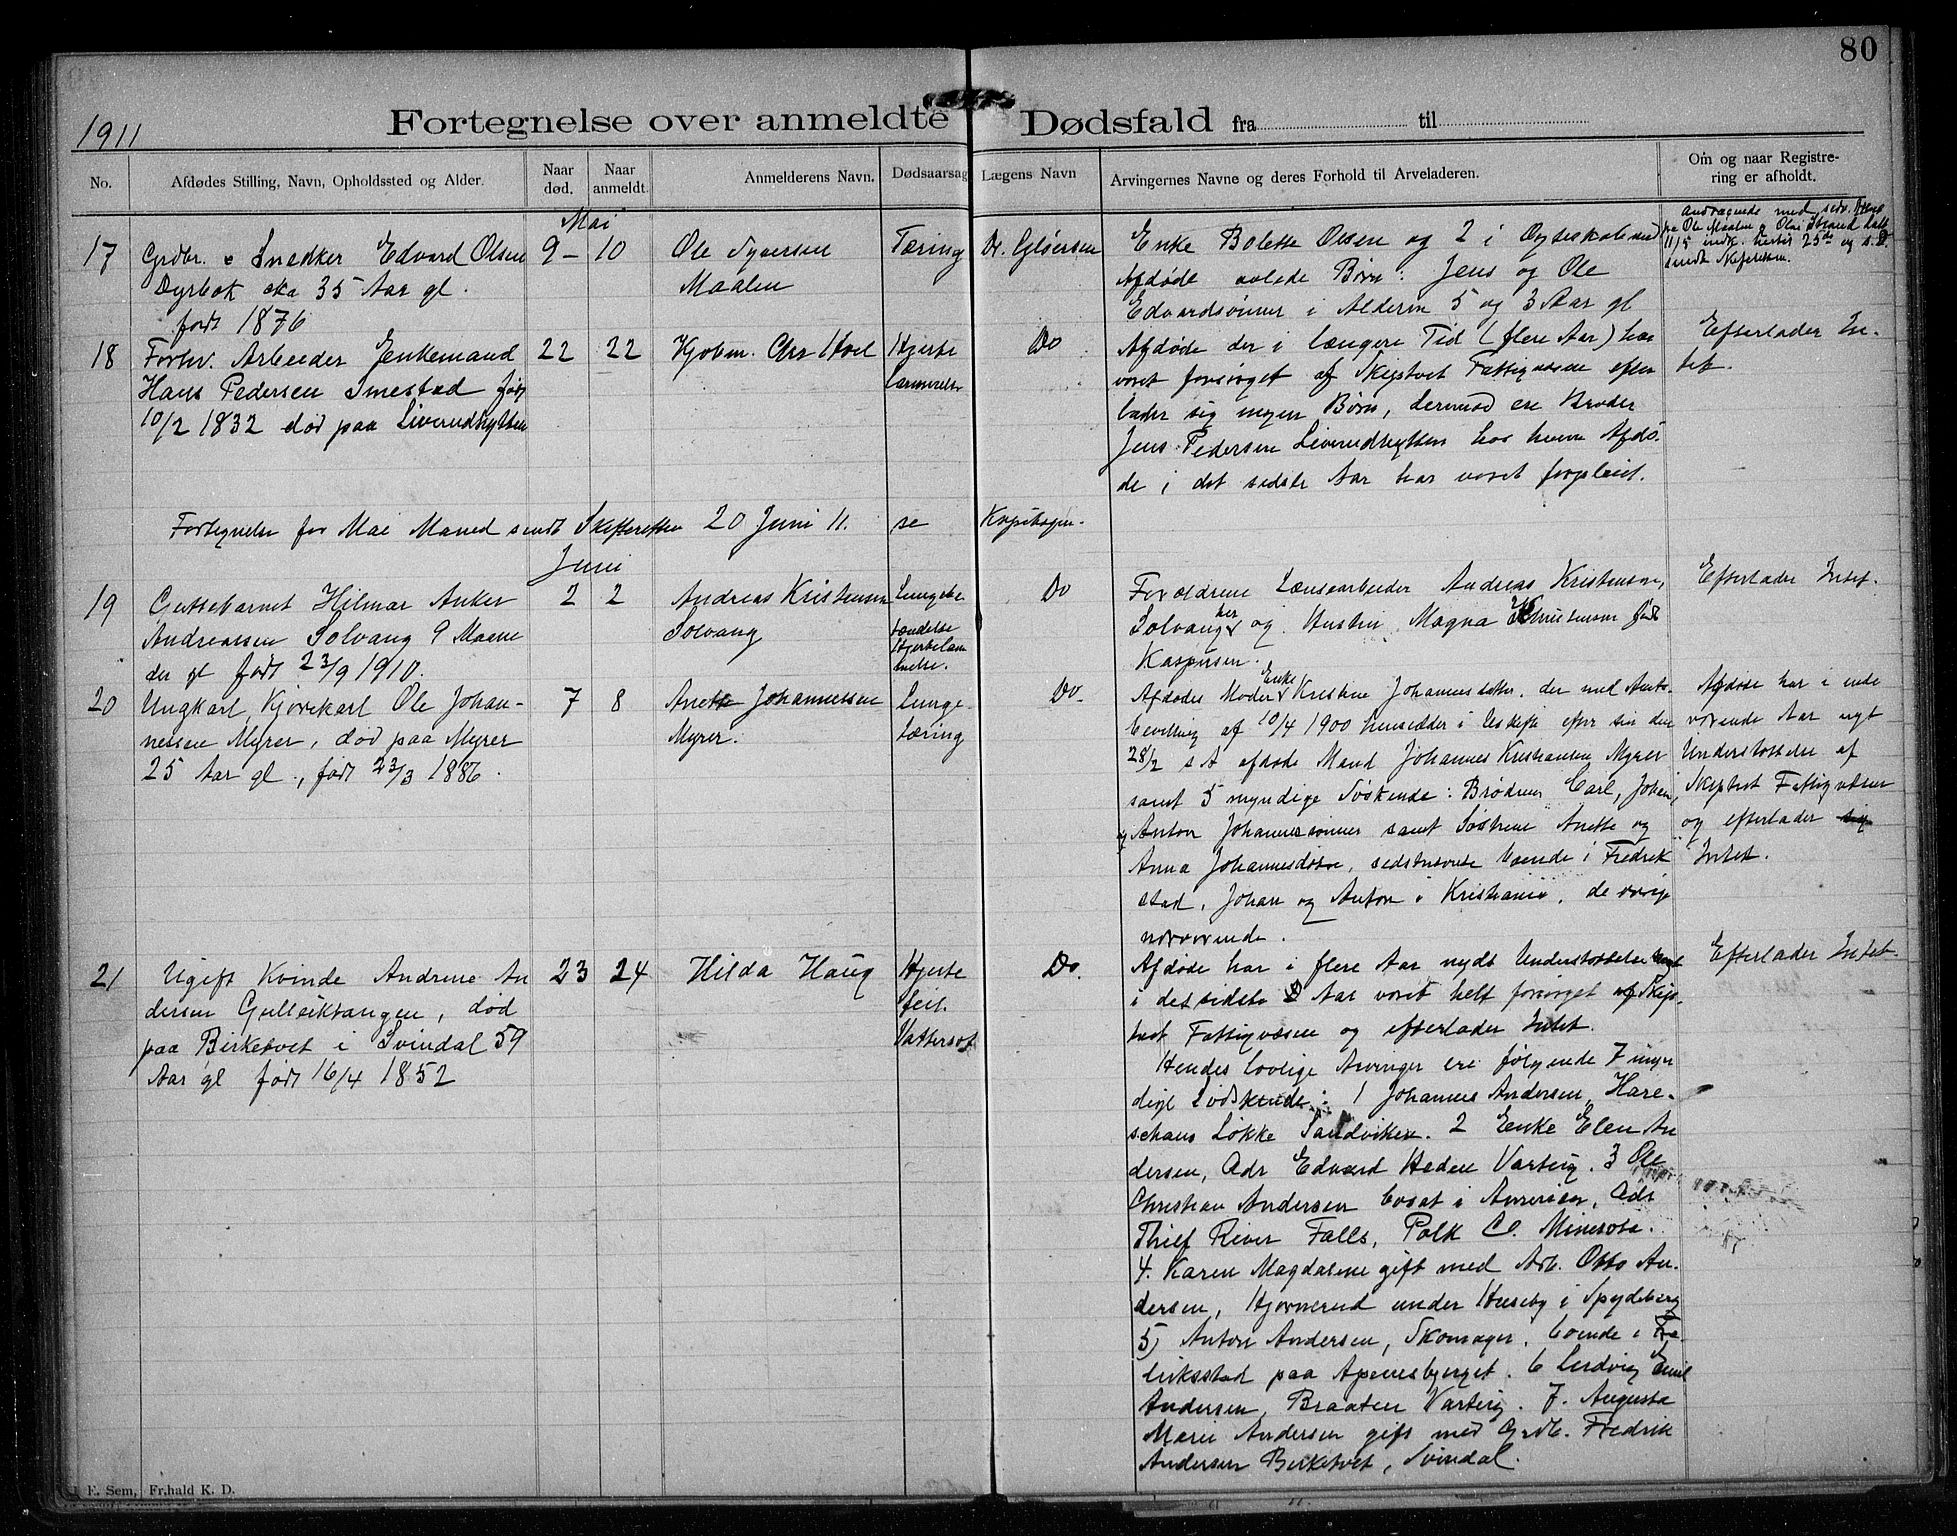 80
1911
Fortegnelse over anmeldte Dødsfald fra til
No.
Afdødes Stilling, Navn, Opholdssted og Alder.
Naar død.
Naar anmeldt.
Anmelderens Navn.
Dødsaarsag
Lægens Navn
Arvingernes Navne og deres Forhold til Arveladeren.
Om og naar Registre-
ring er afholdt.
Mai
17
Grdbr. o Snedker Edvard Olsen
Dyrbok cka 35 Aar gl.
født 1876
9 – 10
Ole Syversen
Maalen
Tæring
Dr. Gløersen
Enke Bolette Olsen og 2 i Ægteskab med
Afdøde avlede Børn: Jens og Ole
Edvardsønner i Alderen 5 og 3 Aar gl
fra Ole Maalen o Olai
11/5 indk. hertil 25de og s. D.
sendt Skifteretten.
18
Forhv. Arbeider Enkemand
Hans Pedersen Smestad født
10/2 1832 død paa Liverudhytten
22 22
Kjøbm. Chr Hoel
Hjerte
Lammelse
Do
Afdøde der i længere Tid (flere Aar) har
været forsørget af Skiptvet Fattigvæsen efter
lader sig ingen Børn, derimod en Broder
Jens Pedersen Liverudhytten hos hvem Afdø-
de i det sidste Aar har været forpleiet.
Efterlader In-
tet.
Fortegnelse for Mai Maned sendt Skifteretten 20 Juni 11. se Kopibogen.
Juni
19
Guttebarnet Hilmar Anker
Andreassen Solvang 9 Maene
der gl født 23/9 1910.
2 2
Andreas Kristensen
Solvang
Lungebe
tændelse
Hjertelam
melse.
Do
Forældrene Lænsearbeider Andreas Kristensen,
Solvang her og Hustru Magna Kristensen født
Kaspersen.
Efterlader Intet.
20
Ungkarl, Kjørekarl Ole Johan-
nessen Myrer, død paa Myrer
25 Aar gl., født 23/3 1886.
7 8
Anette Johannessen
Myrer.
Lunge
tæring
Do.
Afdødes Moder Enke Kristine Johannesdatter, der med Amts-
bevilling af 10/4 1900 hensidder i Uskifte efter sin den
28/2 s A afdøde Mand Johannes Kristiansen Myrer
samt 5 myndige Søskende: Brødrene Carl, Johan,
og Anton Johannessønner samt Søstrene Anette og
Anna Johannesdøtre, sidstnævnte boende i Fredrik
stad, Johan og Anton i Kristiania, de øvrige
nærværende.
Afdøde har i inde
værende Aar nydt
Understøttelse af
Skiptvet Fattigvæsen
og efterlader sig
Intet.
21
Ugift Kvinde Andrine An
dersen Gulliktangen, død
paa Birketvet i Svindal 59
Aar gl født 16/4 1852
23 24
Hilda Haug
Hjerte
feil.
Vattersot
Do.
Afdøde har i flere Aar nydt Understøttelse
i det sidste Aar været helt forsørget af Skip-
tvet Fattigvæsen og efterlader Intet.
Hendes lovlige Arvinger ere følgende 7 myn
dige Sødskende: 1 Johannes Andersen, Hare-
schaus Løkke Sandviken. 2 Enke Elen An
dersen, Adr Edvard Heden Varteig. 3 Ole
Christian Andersen bosat i Amerika, Adr
Thief River Falls, Polk Co. Minesota.
4. Karen Magdalene gift med Arb. Otto An-
dersen, Hjørnerud under Huseby i Spydeberg
5) Anton Andersen, Skomager, boende i Fre-
driksstad paa Apenesbjerget. 6 Ludvig Emil
Andersen, Braaten Varteig. 7. Augusta
Marie Andersen gift med Grdb. Fredrik
Andersen Birketvet, Svindal.
Efterlader Intet.
E. Sem, Fr.hald K. D.